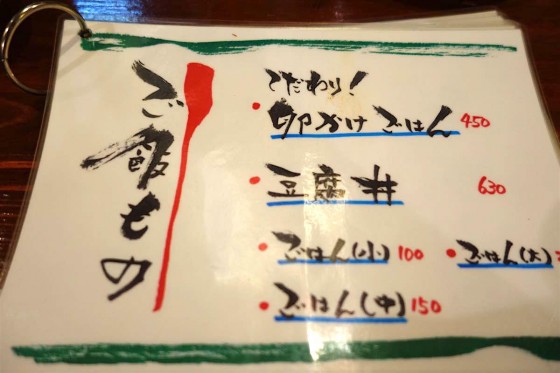 ご飯もの
こだわり!
卵かけごはん 450
豆腐丼 630
ごはん(小) 100 ごはん(大)
ごはん(中) 150